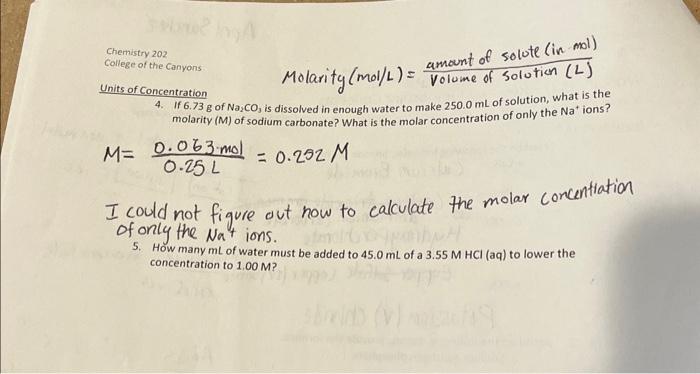 Chemistry 202
College of the Canyons
Molarity (mol/L) = amount of solute (in mol)
Volume of Solution (L)
Units of Concentration
4. If 6.73 g of Na₂CO₃ is dissolved in enough water to make 250.0 mL of solution, what is the
molarity (M) of sodium carbonate? What is the molar concentration of only the Na⁺ ions?
M= 0.063 mol
0.25 L
= 0.252 M
I could not figure out how to calculate the molar concentration
of only the Na⁺ ions.
5. How many mL of water must be added to 45.0 mL of a 3.55 M HCl (aq) to lower the
concentration to 1.00 M?